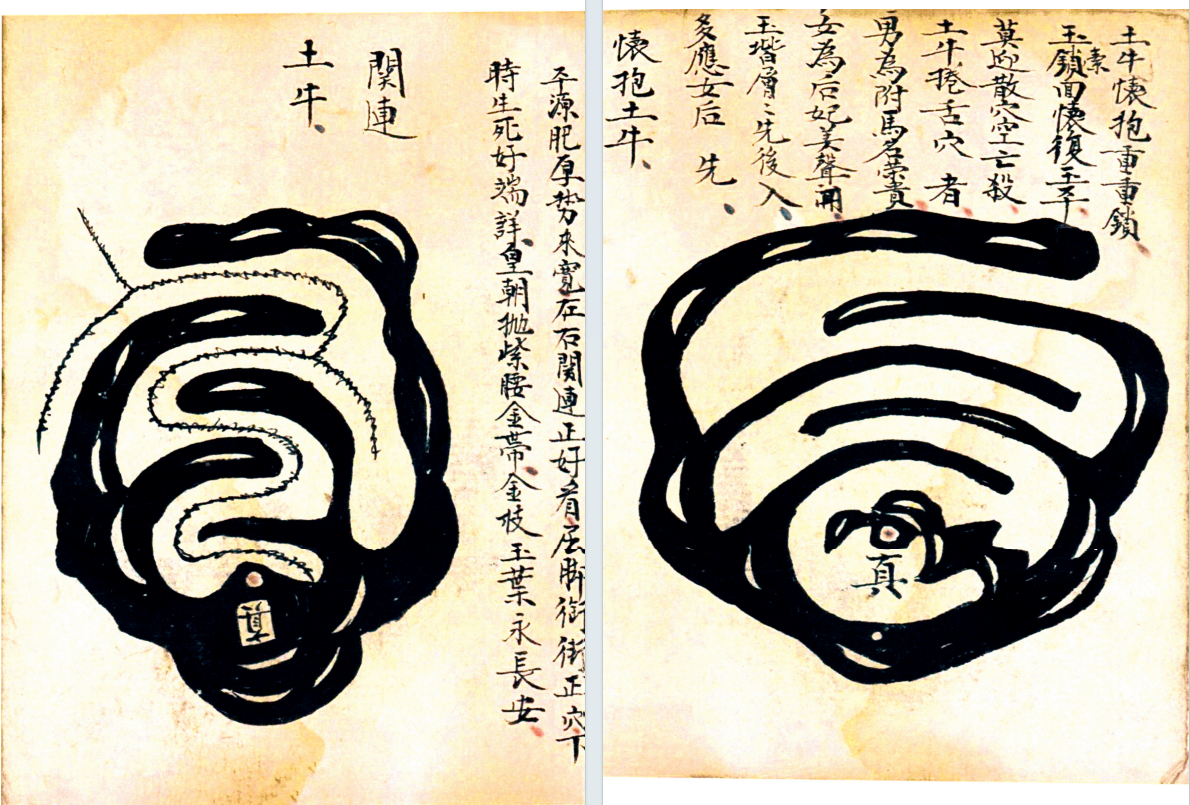 土牛懷抱重重鎖
玉鎖面懷復玉平
索
莫迎散穴空亡殺
土牛捲舌穴者
男為附馬名榮貴
女為后妃美聲聞
玉堦層〻先後入
多應女后先
懷抱土牛
真
平源肥厚势來寬在石関連正好看屈脚衙街正穴下
時生死好端詳皇朝抛紫腰金帶金枝玉葉永長安
関連
土牛
真